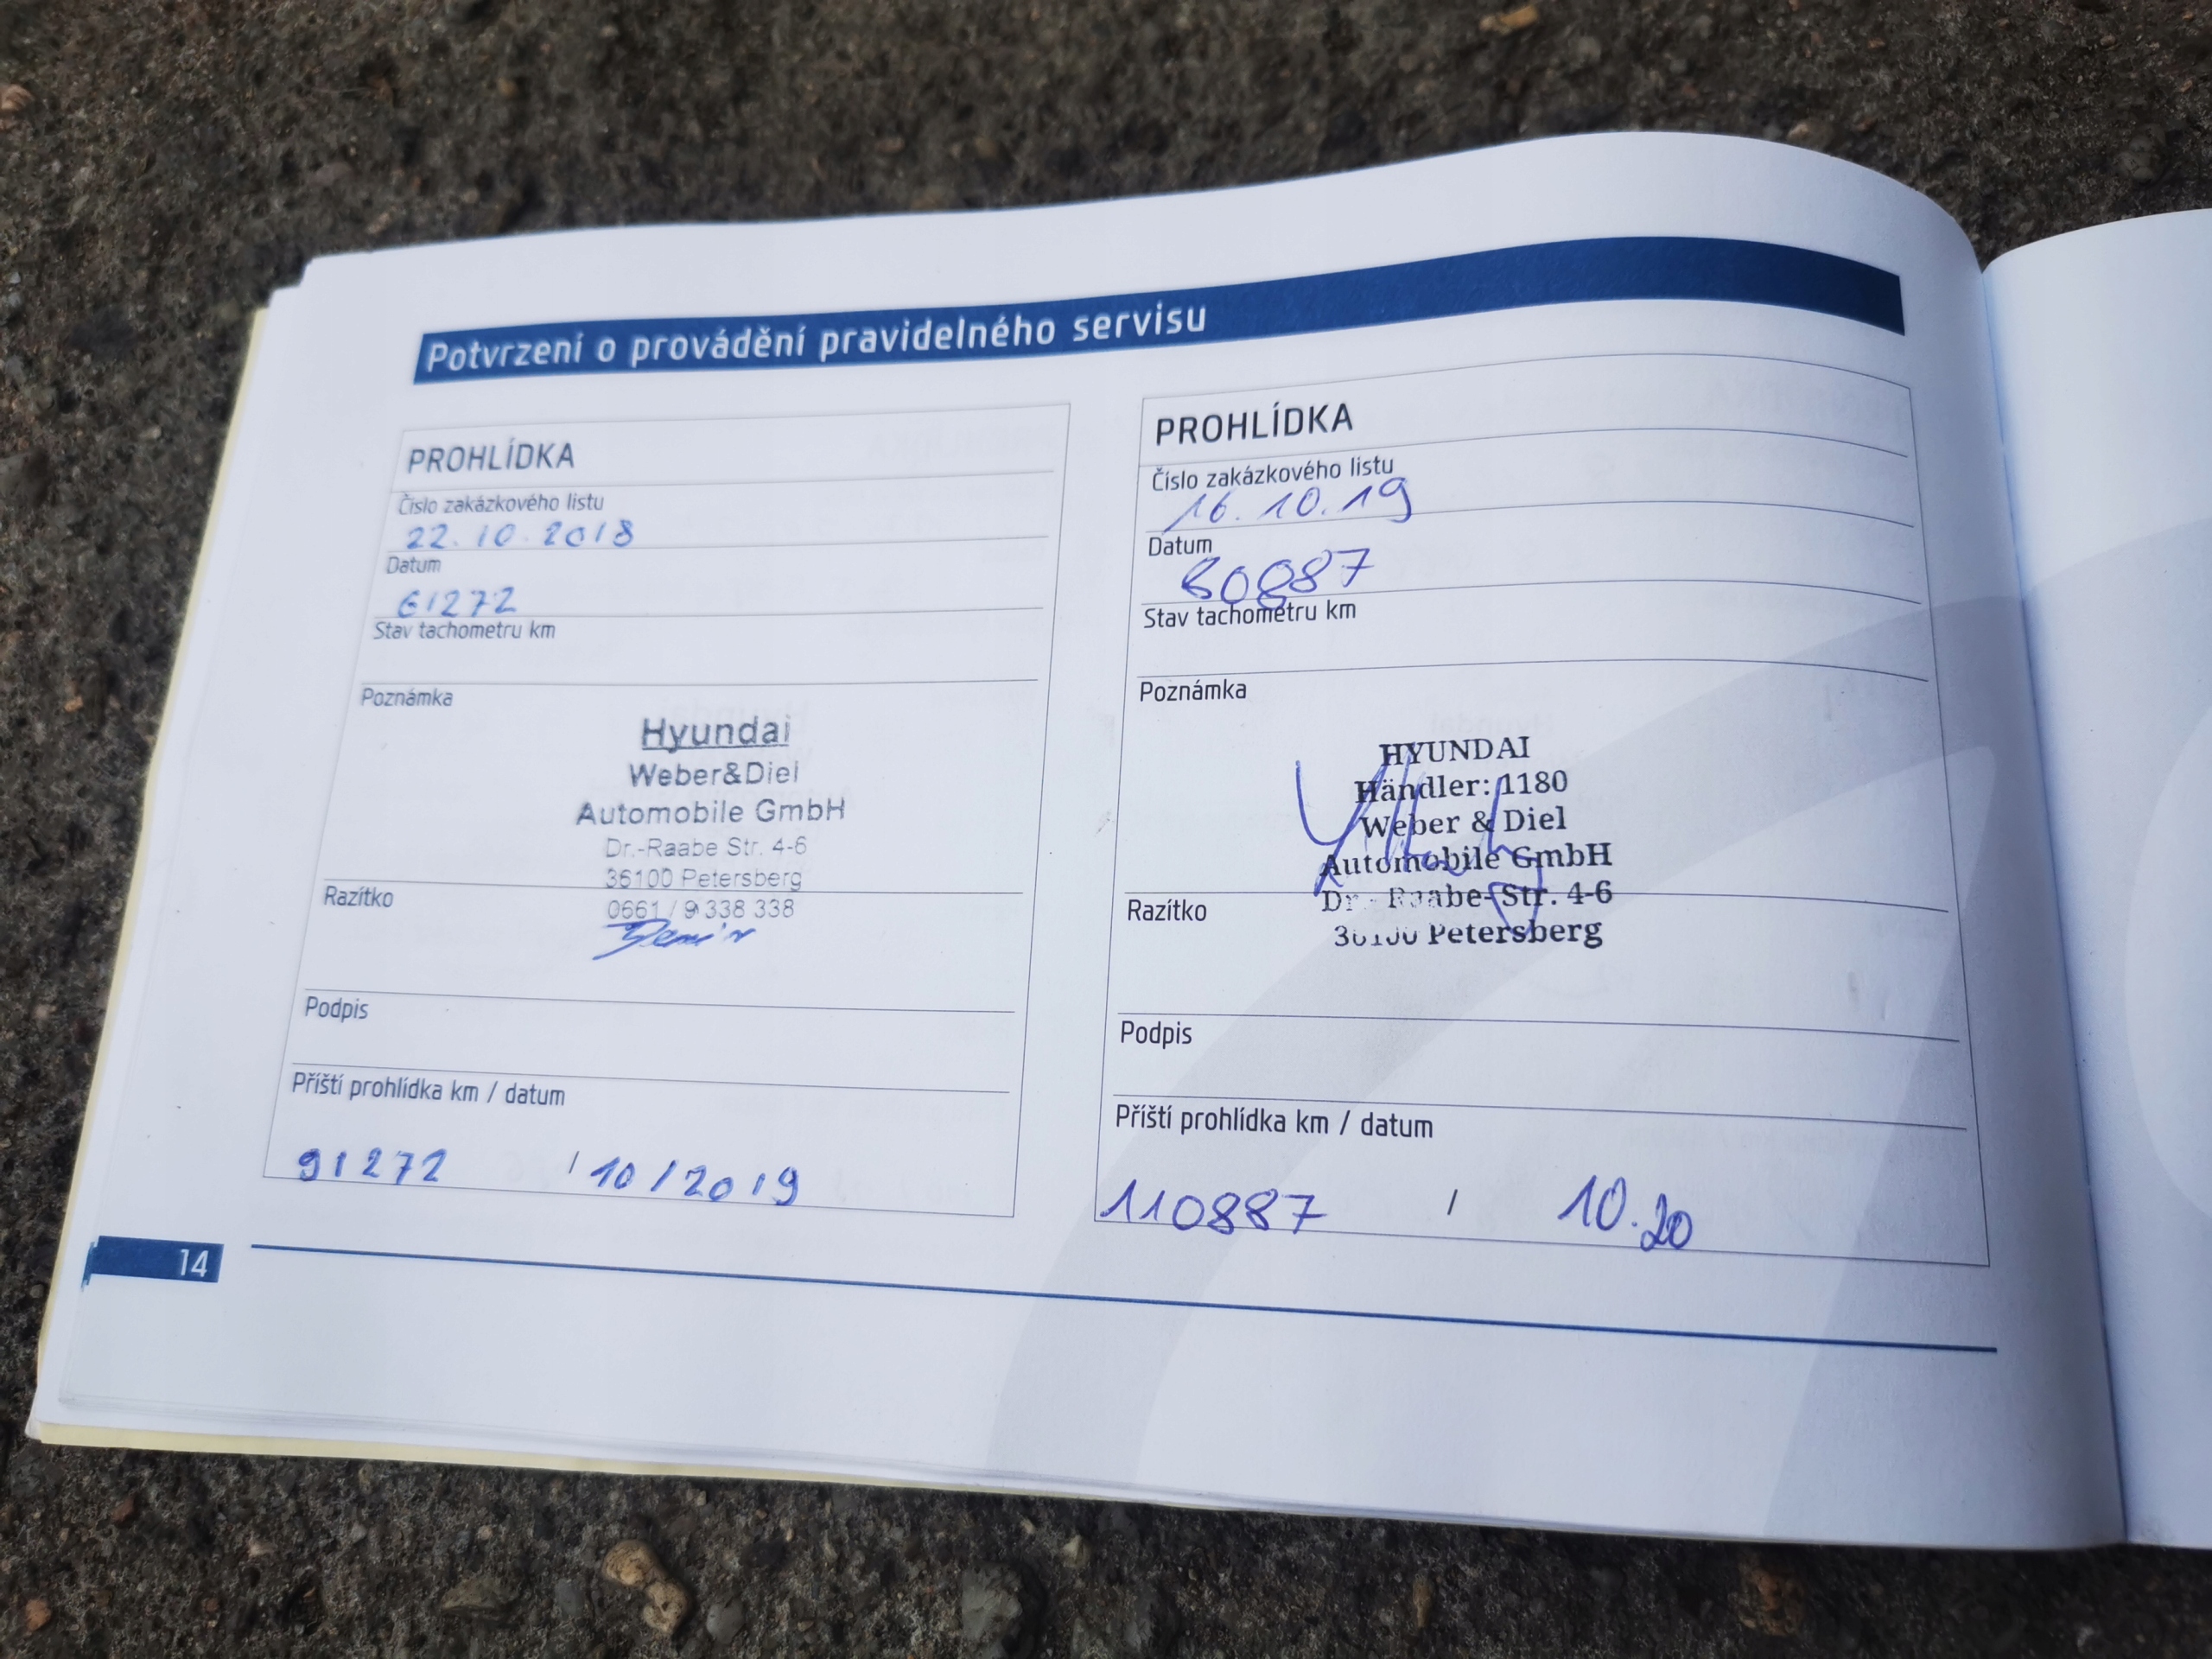 Potvrzení o provádění pravidelného servisu
PROHLÍDKA
Číslo zakázkového listu
22.10.2018
Datum
61272
Stav tachometru km
Poznámka
Hyundai
Weber&Diel
Automobile GmbH
Dr.-Raabe Str. 4-6
36100 Petersberg
Razítko
0661 / 9 338 338
Podpis
Příští prohlídka km / datum
91272 / 10/2019
PROHLÍDKA
Číslo zakázkového listu
16.10.19
Datum
80887
Stav tachometru km
Poznámka
HYUNDAI
Händler: 1180
Weber & Diel
Automobile GmbH
Dr.- Raabe-Str. 4-6
Razítko
36100 Petersberg
Podpis
Příští prohlídka km / datum
110887 / 10.20
14